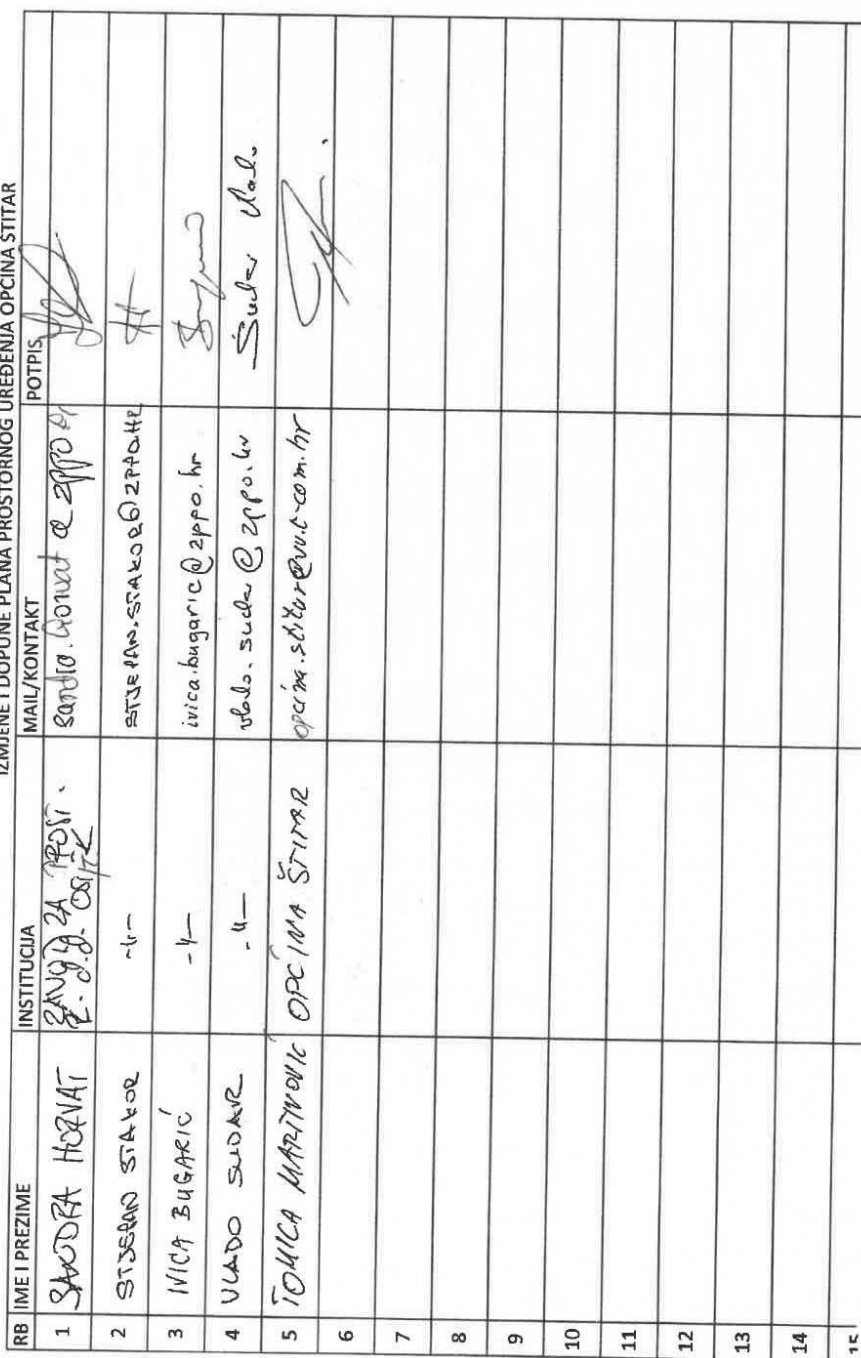 IZMJENE I DOPUNE PLANA PROSTORNOG UREĐENJA OPĆINA ŠTITAR
RB IME I PREZIME INSTITUCIJA MAIL/KONTAKT POTPIS
1 SANDRA HORVAT ZAVOD ZA PROST.
d.d. OSIJEK sandra.horvat@zppo.hr
2 STJEPAN STAKOR -"- STJEPAN.STAKOR@ZPPO.HR
3 IVICA BUGARIĆ -"- ivica.bugaric@zppo.hr
4 VLADO SUDAR -"- vlado.sudar@zppo.hr Sudar Vlado
5 TOMICA MARTINOVIĆ OPĆINA ŠTITAR opcina.stitar@vu.t-com.hr
6
7
8
9
10
11
12
13
14
15